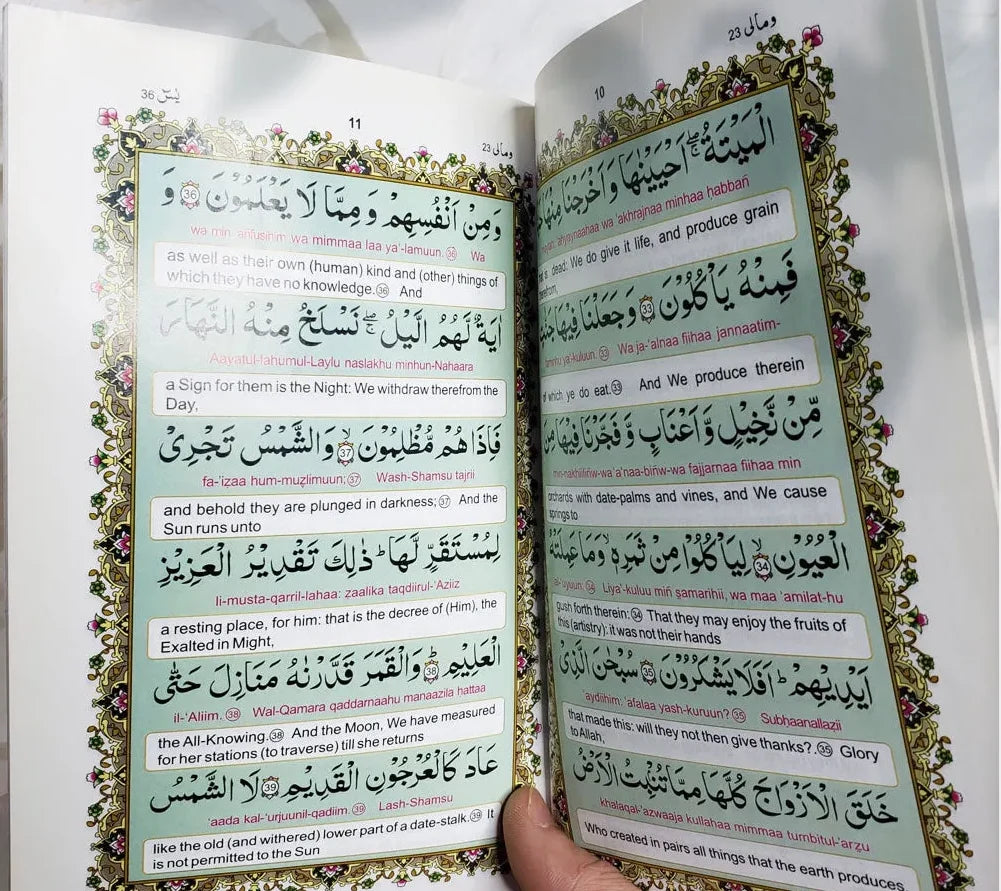 23 ومالی
10
الْمَيْتَةُ ۖ اَحْيَيْنٰهَا وَاَخْرَجْنَا مِنْهَا
ahyaynaahaa wa 'akhrajnaa minhaa ḥabbañ
dead: We do give it life, and produce grain
فَمِنْهُ يَاْكُلُوْنَ ﴿33﴾ وَجَعَلْنَا فِيْهَا
ya-kuluun. ㉝ Wa ja-'alnaa fiihaa jannaatim-
of which ye do eat.㉝ And We produce therein
مِّنْ نَّخِيْلٍ وَّاَعْنَابٍ وَّفَجَّرْنَا فِيْهَا مِنَ
min-nakhiiliñw-wa 'a'naa-biñw-wa fajjarnaa fiihaa min
orchards with date-palms and vines, and We cause
springs to
الْعُيُوْنِ ﴿34﴾ لِيَاْكُلُوْا مِنْ ثَمَرِهٖ وَمَا عَمِلَتْهُ
al-'uyuun: ㉞ Liya'kuluu miñ samarihii, wa maa 'amilat-hu
gush forth therein:㉞ That they may enjoy the fruits of
this (artistry): it was not their hands
اَيْدِيْهِمْ ؕ اَفَلَا يَشْكُرُوْنَ ﴿35﴾ سُبْحٰنَ الَّذِيْ
'aydiihim: 'afalaa yash-kuruun? ㉟ Subḥaanallaẓii
that made this: will they not then give thanks?.㉟ Glory
to Allah,
خَلَقَ الْاَزْوَاجَ كُلَّهَا مِمَّا تُنْۢبِتُ الْاَرْضُ
khalaqal-'azwaaja kullahaa mimmaa tumbitul-'arẓu
Who created in pairs all things that the earth produces
36 يٰسٓ
11
23 ومالی
وَمِنْ اَنْفُسِهِمْ وَمِمَّا لَا يَعْلَمُوْنَ ﴿36﴾ وَ
wa min. anfusihim wa mimmaa laa ya'-lamuun. ㊱ Wa
as well as their own (human) kind and (other) things of
which they have no knowledge.㊱ And
اٰيَةٌ لَّهُمُ الَّيْلُ ۖ نَسْلَخُ مِنْهُ النَّهَارَ
Aayatul-lahumul-Laylu naslakhu minhun-Nahaara
a Sign for them is the Night: We withdraw therefrom the
Day,
فَاِذَا هُمْ مُّظْلِمُوْنَ ﴿37﴾ وَالشَّمْسُ تَجْرِيْ
fa-'iẓaa hum-muẓlimuun; ㊲ Wash-Shamsu tajrii
and behold they are plunged in darkness;㊲ And the
Sun runs unto
لِمُسْتَقَرٍّ لَّهَا ؕ ذٰلِكَ تَقْدِيْرُ الْعَزِيْزِ
li-musta-qarril-lahaa: ẓaalika taqdiirul-'Aziiz
a resting place, for him: that is the decree of (Him), the
Exalted in Might,
الْعَلِيْمِ ؕ ﴿38﴾ وَالْقَمَرَ قَدَّرْنٰهُ مَنَازِلَ حَتّٰى
il-'Aliim. ㊳ Wal-Qamara qaddarnaahu manaazila ḥattaa
the All-Knowing.㊳ And the Moon, We have measured
for her stations (to traverse) till she returns
عَادَ كَالْعُرْجُوْنِ الْقَدِيْمِ ﴿39﴾ لَا الشَّمْسُ
'aada kal-'urjuunil-qadiim. ㊴ Lash-Shamsu
like the old (and withered) lower part of a date-stalk.㊴ It
is not permitted to the Sun